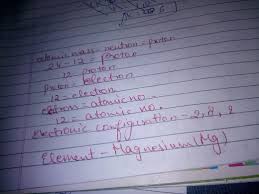 atomic mass - neutron = proton
24 - 12 = proton
12 proton
proton = electron
12 = electron
electrons = atomic no.
12 = atomic no.
Electronic configuration - 2, 8, 2
Element - Magnesium (Mg)